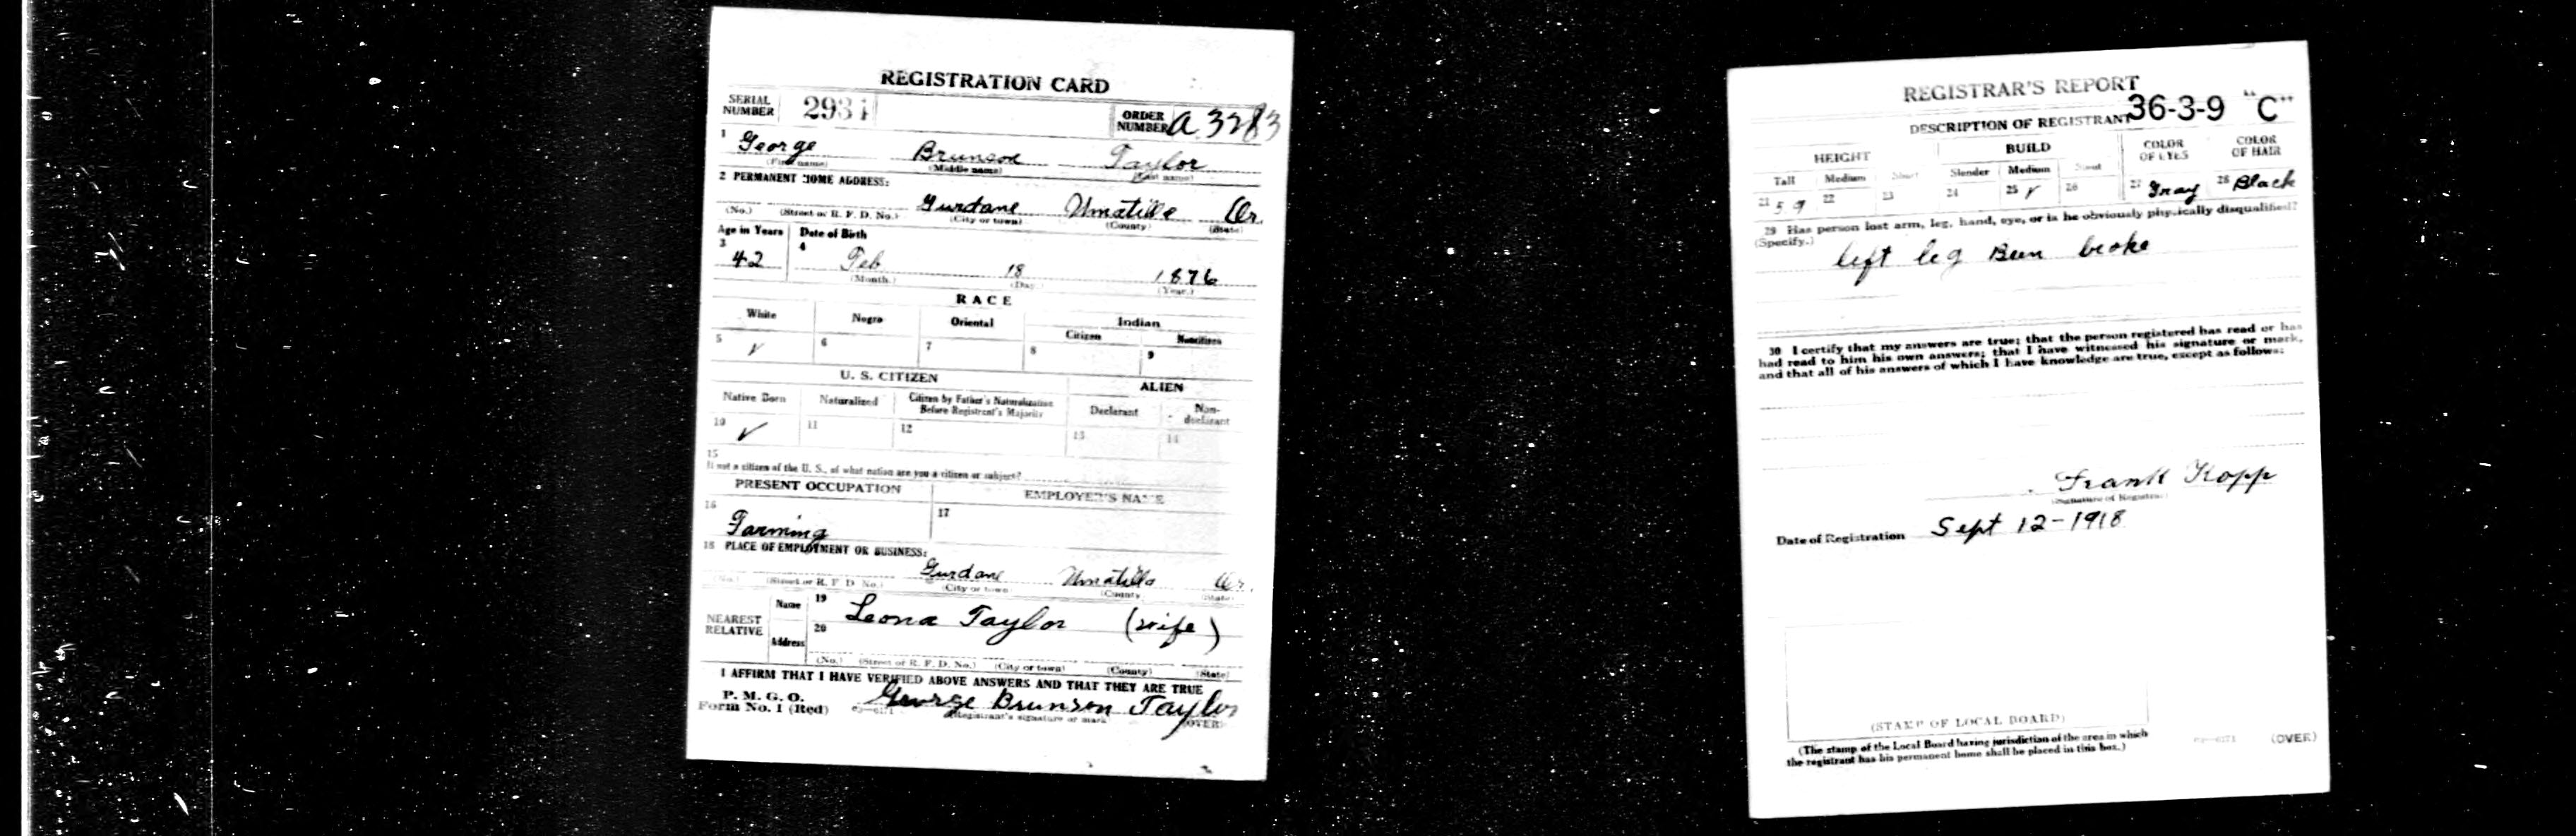 REGISTRATION CARD
SERIAL NUMBER 2931
ORDER NUMBER A 3283
1 George Brunson Taylor
(First name) (Middle name) (Last name)
2 PERMANENT HOME ADDRESS:
Gurdane Umatilla Or.
(No.) (Street or R. F. D. No.) (City or town) (County) (State)
Age in Years Date of Birth
3 4
42 Feb 18 1876
(Month.) (Day.) (Year.)
RACE
White Negro Oriental Indian
Citizen Noncitizen
5 ✓ 6 7 8 9
U. S. CITIZEN ALIEN
Native Born Naturalized Citizen by Father's Naturalization Before Registrant's Majority Declarant Non-declarant
10 ✓ 11 12 13 14
15
If not a citizen of the U. S., of what nation are you a citizen or subject?
PRESENT OCCUPATION EMPLOYER'S NAME
16 Farming 17
18 PLACE OF EMPLOYMENT OR BUSINESS:
Gurdane Umatilla Or.
(No.) (Street or R. F. D. No.) (City or town) (County) (State)
NEAREST RELATIVE
Name 19 Leona Taylor (wife)
Address 20
(No.) (Street or R. F. D. No.) (City or town) (County) (State)
I AFFIRM THAT I HAVE VERIFIED ABOVE ANSWERS AND THAT THEY ARE TRUE
P. M. G. O.
Form No. 1 (Red) George Brunson Taylor
(Registrant's signature or mark) (OVER)
REGISTRAR'S REPORT
36-3-9 "C"
DESCRIPTION OF REGISTRANT
HEIGHT BUILD COLOR OF EYES COLOR OF HAIR
Tall Medium Short Slender Medium Stout
21 5 9 22 23 24 25 ✓ 26 27 Gray 28 Black
29 Has person lost arm, leg, hand, eye, or is he obviously physically disqualified?
(Specify.)
left leg Been broke
30 I certify that my answers are true; that the person registered has read or has
had read to him his own answers; that I have witnessed his signature or mark,
and that all of his answers of which I have knowledge are true, except as follows:
Frank Kopp
(Signature of Registrar)
Date of Registration Sept 12-1918
(STAMP OF LOCAL BOARD)
(The stamp of the Local Board having jurisdiction of the area in which
the registrant has his permanent home shall be placed in this box.)
(OVER)